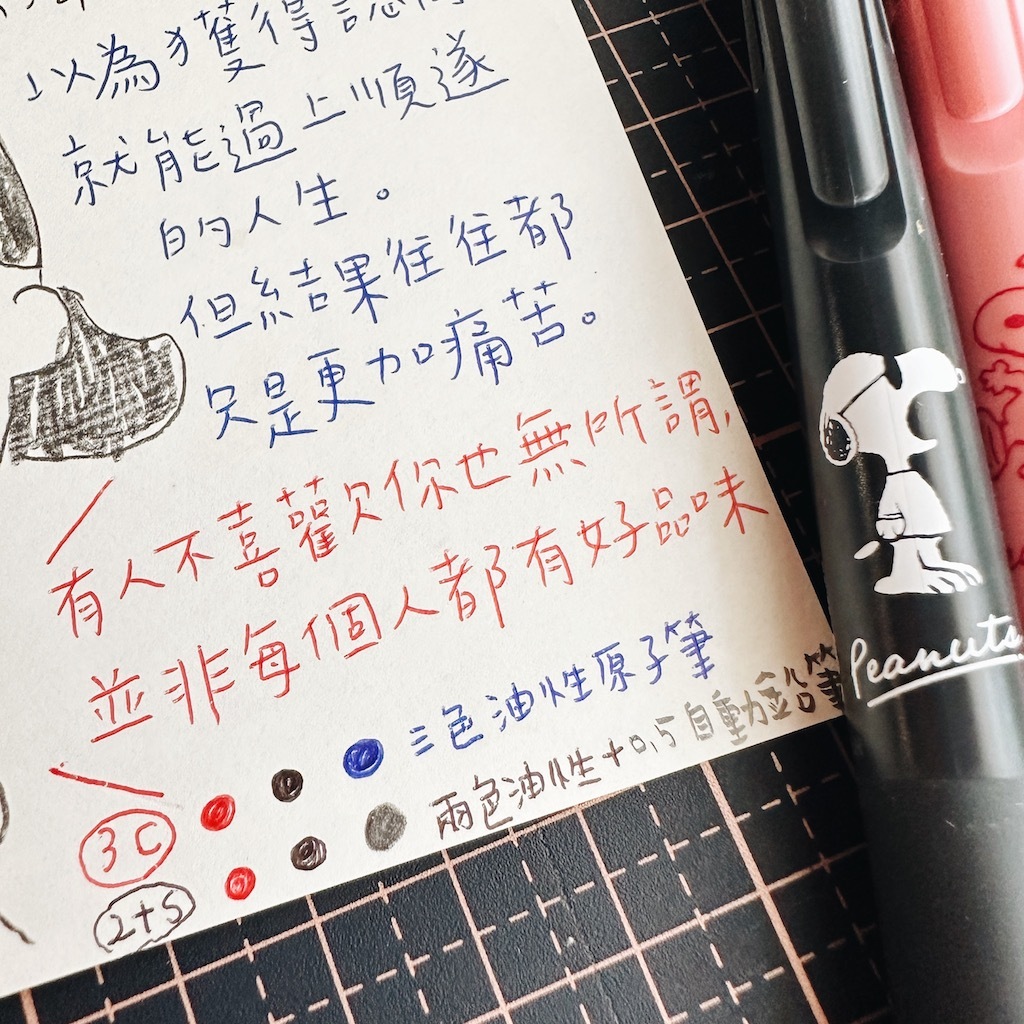 以為獲得認同
就能過上順遂
的人生。
但結果往往都
只是更加痛苦。
有人不喜歡你也無所謂,
並非每個人都有好品味
三色油性原子筆
3C
兩色油性+0.5自動鉛筆
2+S
Peanuts